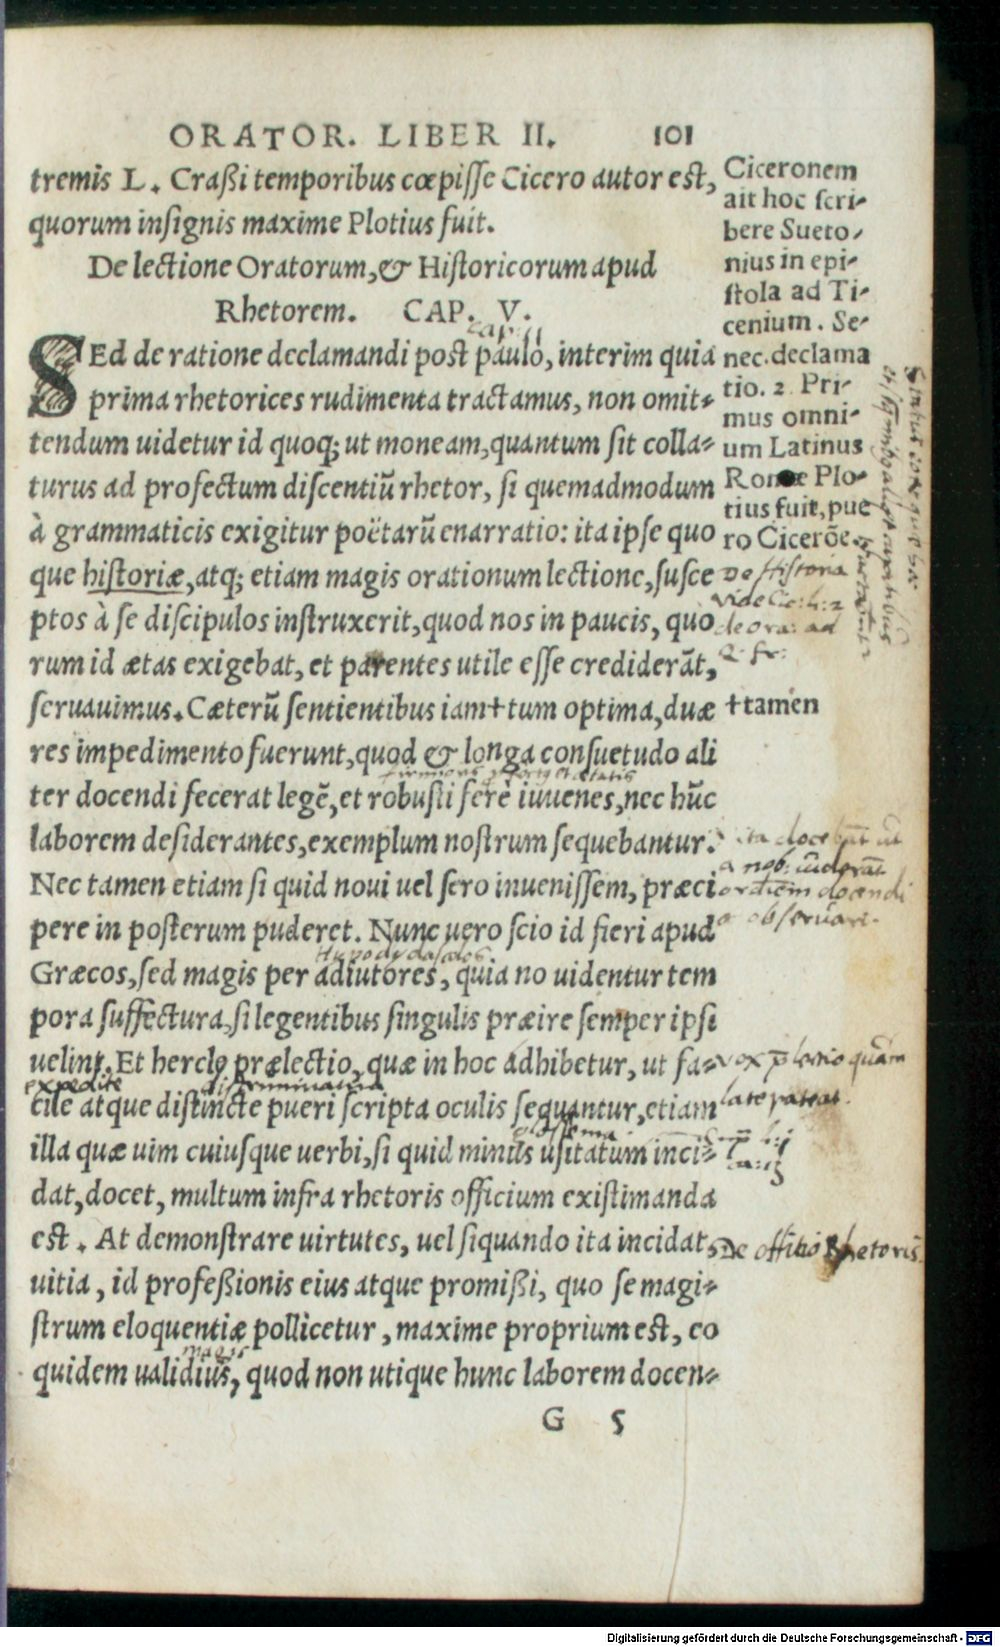 ORATOR. LIBER II. 101
tremis L. Craßi temporibus cœpisse Cicero autor est,
quorum insignis maxime Plotius fuit.
De lectione Oratorum, & Historicorum apud
Rhetorem. CAP. V.
cap. 11
SEd de ratione declamandi post paulo, interim quia
prima rhetorices rudimenta tractamus, non omit-
tendum uidetur id quoq; ut moneam, quantum sit colla-
turus ad profectum discentiũ rhetor, si quemadmodum
à grammaticis exigitur poëtarũ enarratio: ita ipse quo
que historiæ, atq; etiam magis orationum lectione, susce
ptos à se discipulos instruxerit, quod nos in paucis, quo
rum id ætas exigebat, et parentes utile esse crediderãt,
seruauimus. Cæterũ sentientibus iam † tum optima, duæ
res impedimento fuerunt, quod & longa consuetudo ali
ter docendi fecerat legẽ, et robusti ferè iuuenes, nec hũc
laborem desiderantes, exemplum nostrum sequebantur.
Nec tamen etiam si quid noui uel sero inuenissem, præci
pere in posterum puderet. Nunc uero scio id fieri apud
Hypodydascalos
Græcos, sed magis per adiutores, quia no uidentur tem
pora suffectura, si legentibus singulis præire semper ipsi
uelint. Et hercle prælectio, quæ in hoc adhibetur, ut fa-
expedite discriminatim
cile atque distincte pueri scripta oculis sequantur, etiam
glossema
illa quæ uim cuiusque uerbi, si quid minus usitatum inci-
dat, docet, multum infra rhetoris officium existimanda
est. At demonstrare uirtutes, uel siquando ita incidat,
uitia, id profeßionis eius atque promißi, quo se magi-
strum eloquentiæ pollicetur, maxime proprium est, eo
magis
quidem ualidius, quod non utique hunc laborem docen-
G 5
Ciceronem
ait hoc scri-
bere Sueto-
nius in epi-
stola ad Ti-
cenium. Se-
nec. declama
tio. 2 Pri-
mus omni-
um Latinus
Romæ Plo-
tius fuit, pue
ro Cicerõe.
De Historia
vide Cic: li: 2
de ora: ad
Q: fr:
† tamen
ita docebãt ut
a nob:
ordinem docendi
observari.
vox plectio quam
late pateat.
De offitio Rhetoris
Digitalisierung gefördert durch die Deutsche Forschungsgemeinschaft - DFG